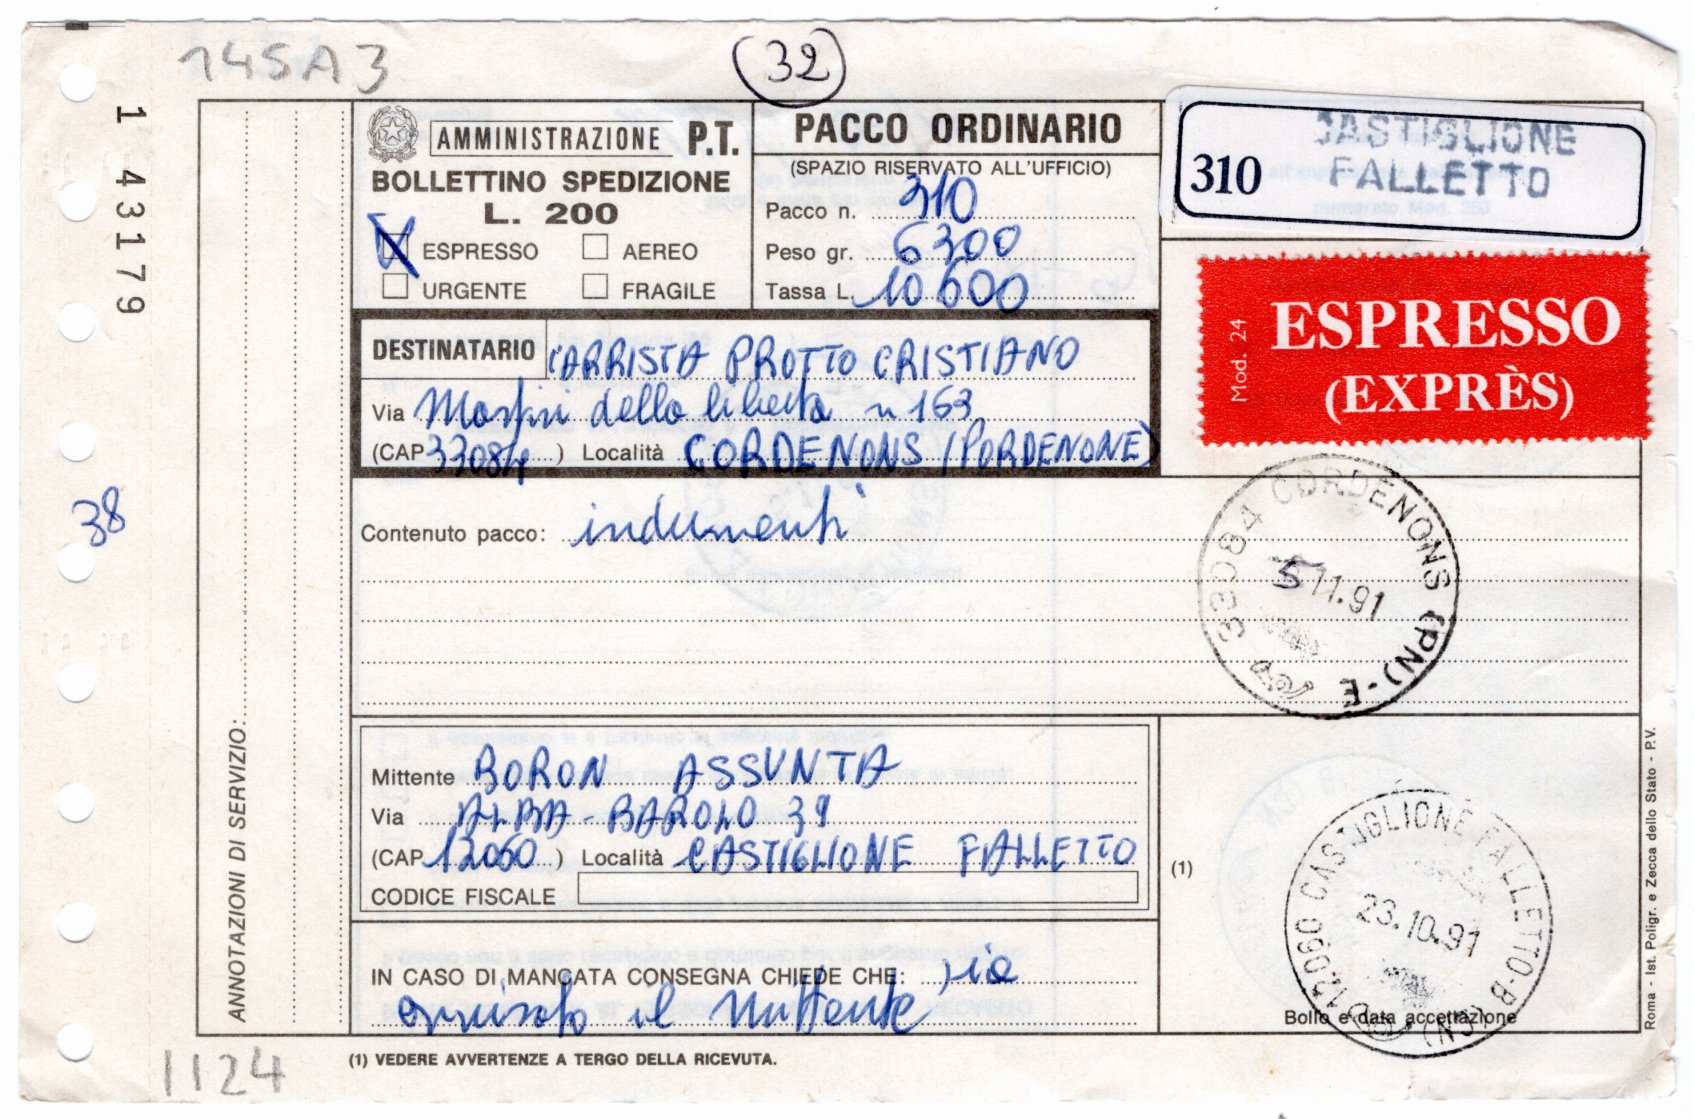 145A3
32
1 43179
38
AMMINISTRAZIONE P.T.
BOLLETTINO SPEDIZIONE
L. 200
ESPRESSO AEREO
URGENTE FRAGILE
PACCO ORDINARIO
(SPAZIO RISERVATO ALL'UFFICIO)
Pacco n. 310
Peso gr. 6300
Tassa L. 10600
310 CASTIGLIONE
FALLETTO
Mod. 24
ESPRESSO
(EXPRÈS)
DESTINATARIO CARRISTA PROTTO CRISTIANO
Via Martiri della libertà n 163
(CAP 33084) Località CORDENONS (PORDENONE)
Contenuto pacco: indumenti
33084 CORDENONS (PN) - E
5 11.91
ANNOTAZIONI DI SERVIZIO:
Mittente BORON ASSUNTA
Via ALBA-BAROLO 39
(CAP 12060) Località CASTIGLIONE FALLETTO
CODICE FISCALE
(1)
12060 CASTIGLIONE FALLETTO-B (CN)
23.10.91
Bollo e data accettazione
IN CASO DI MANCATA CONSEGNA CHIEDE CHE: sia
avvisato il Mittente
Roma - Ist. Poligr. e Zecca dello Stato - P.V.
(1) VEDERE AVVERTENZE A TERGO DELLA RICEVUTA.
1124